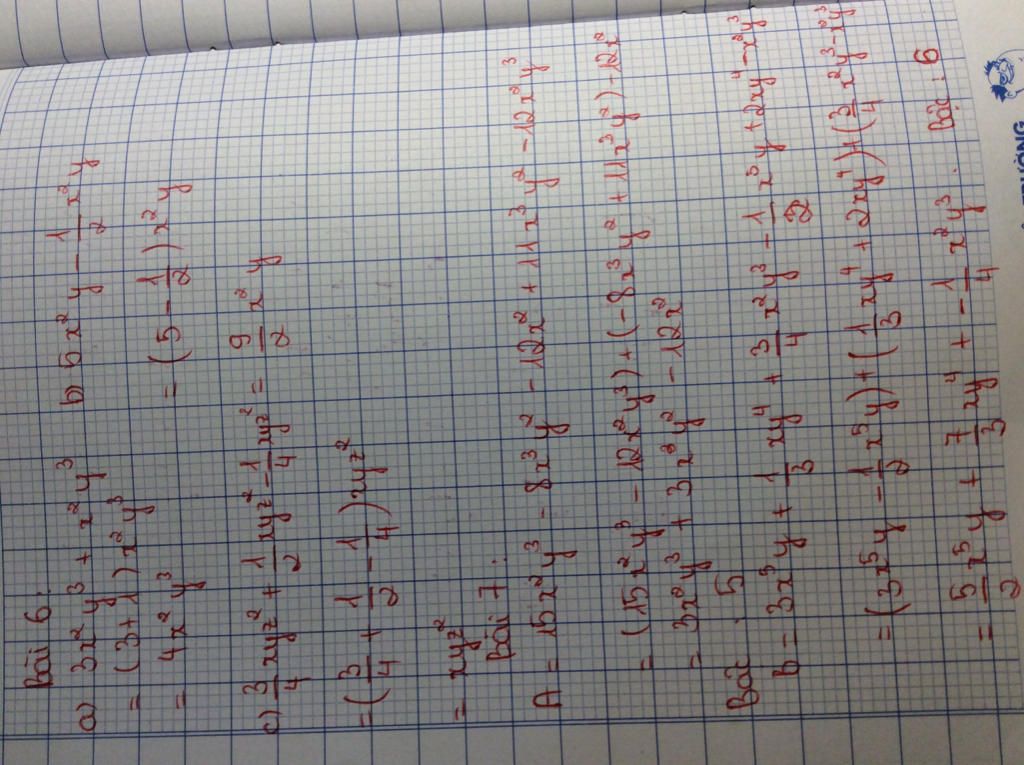 Bài 6:
a) 3x²y³ + x²y³ b) 5x²y - 1/2 x²y
= (3+1)x²y³ = (5 - 1/2)x²y
= 4x²y³
c) 3/4 xyz² + 1/2 xyz² - 1/4 xyz² = 9/2 x²y
= (3/4 + 1/2 - 1/4)xyz²
= xyz²
Bài 7:
A = 15x²y³ - 8x³y² - 12x² + 11x³y² - 12x²y³
= (15x²y³ - 12x²y³) + (-8x³y² + 11x³y²) - 12x²
= 3x²y³ + 3x³y² - 12x²
Bài: 5
B = 3x⁵y + 1/3 xy⁴ + 3/4 x²y³ - 1/2 x⁵y + 2xy⁴ - x²y³
= (3x⁵y - 1/2 x⁵y) + (1/3 xy⁴ + 2xy⁴) + (3/4 x²y³ - x²y³
= 5/2 x⁵y + 7/3 xy⁴ + - 1/4 x²y³. Bài: 6